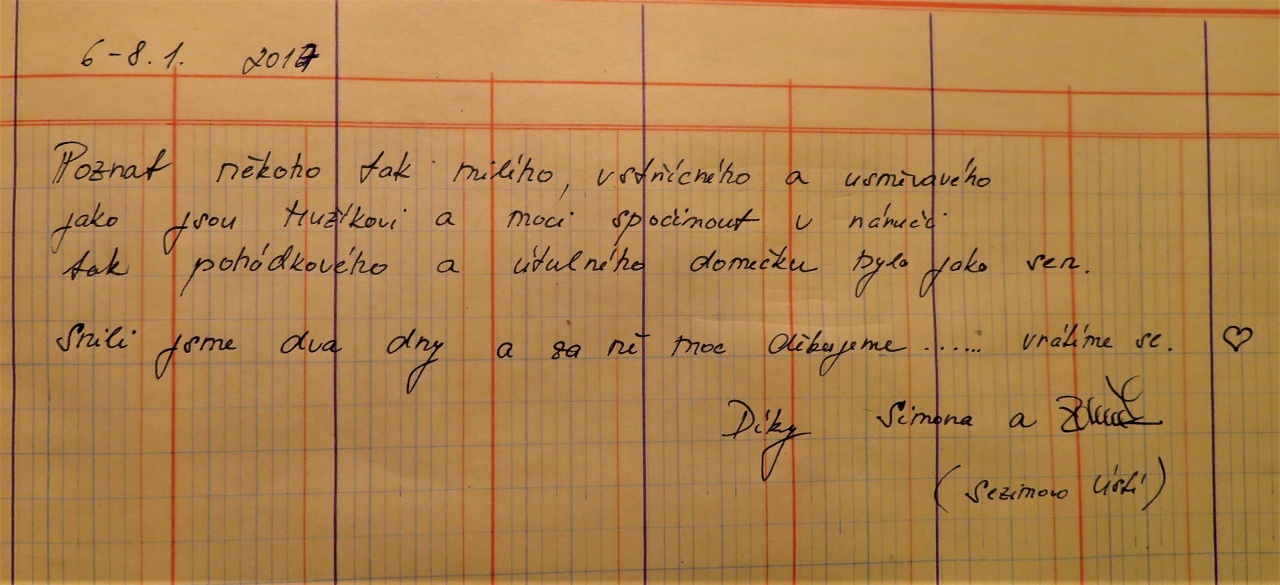 6-8.1. 2017
Poznat někoho tak milého, vstřícného a usměvavého
jako jsou Hužíkovi a moci spočinout v náručí
tak pohádkového a útulného domečku bylo jako sen.
Snili jsme dva dny a za ně moc děkujeme ...... vrátíme se. ♡
Díky Simona a
(Sezimovo Ústí)